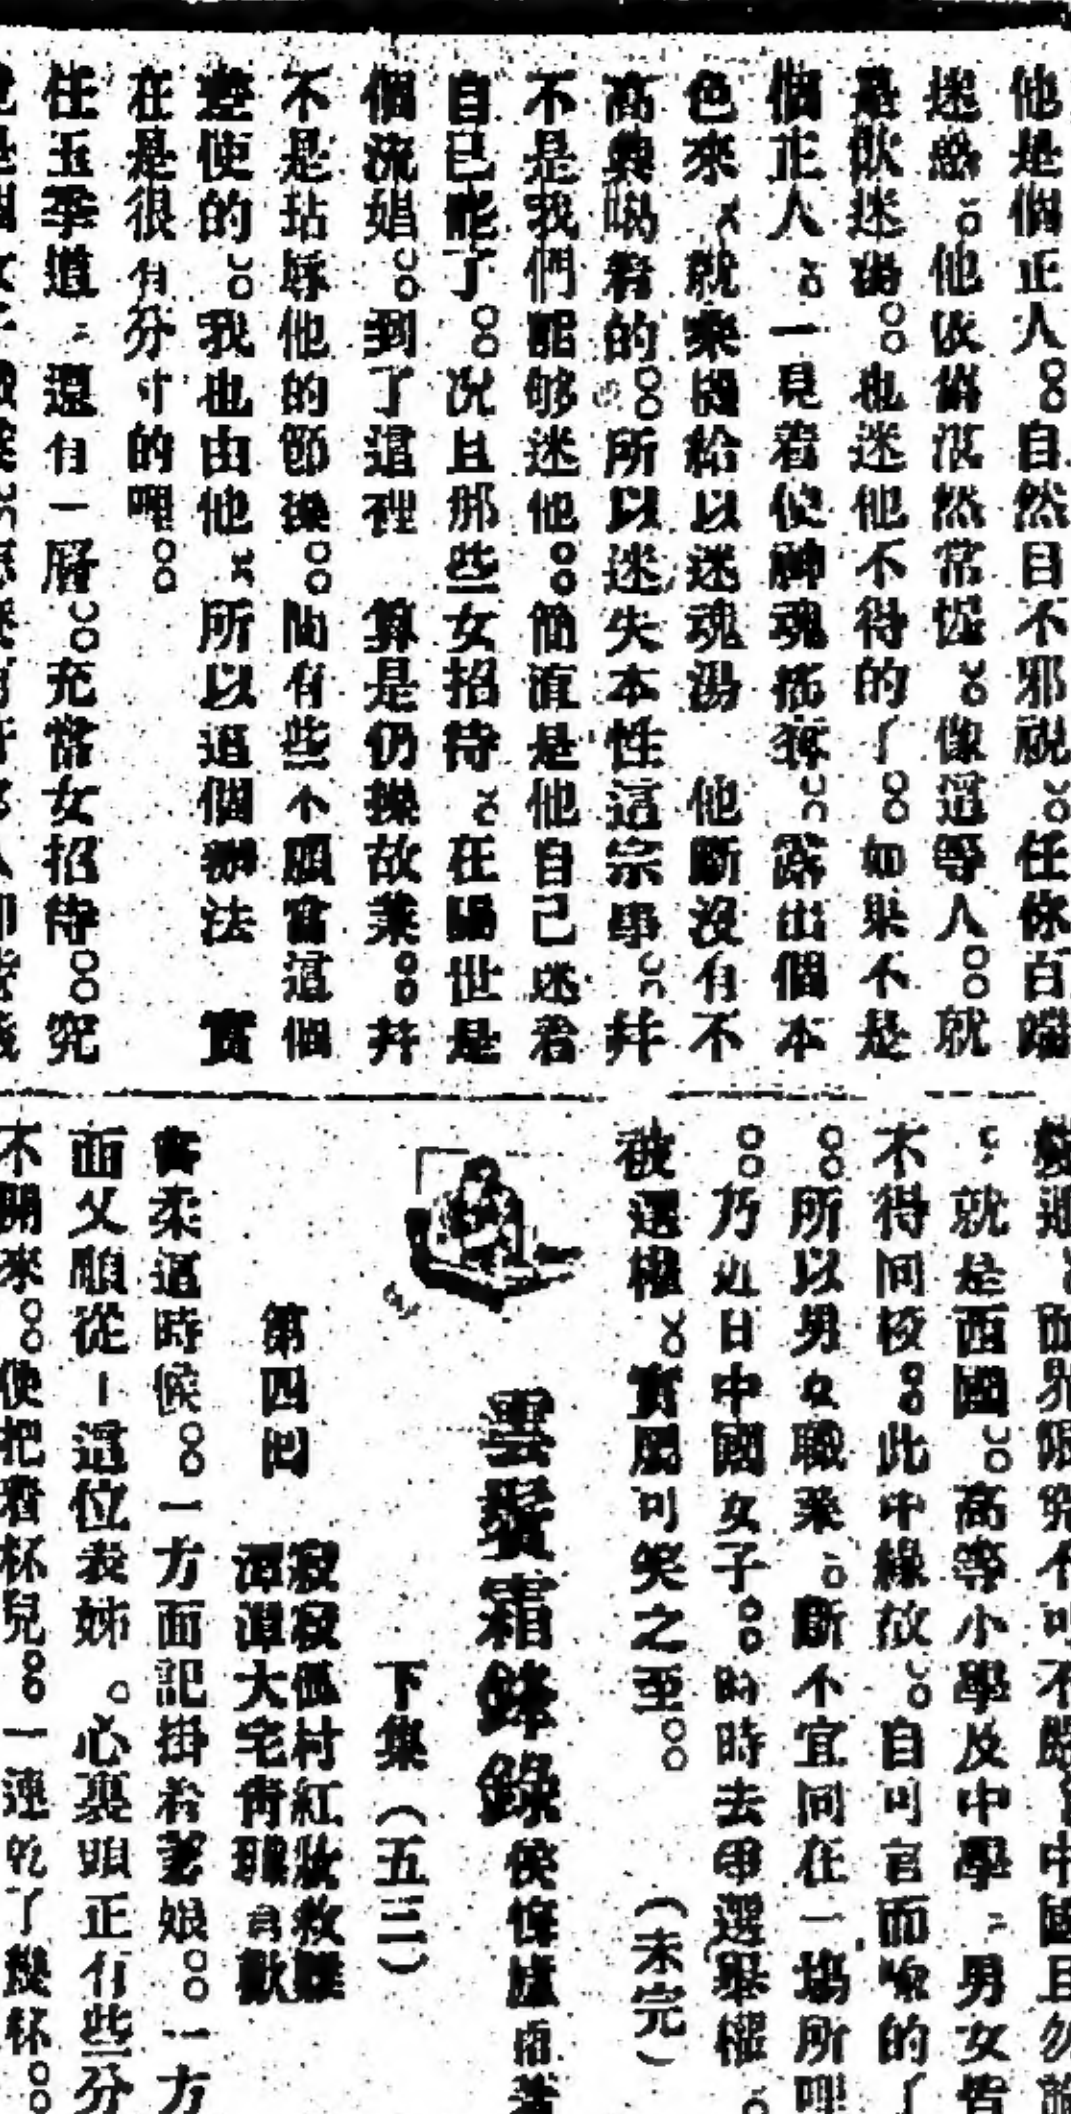 他是個正人。自然目不邪視。任你百端
迷惑。他依舊漠然常惺。像這等人。就
是飲迷湯。也迷他不得的了。如果不是
個正人。一見着便神魂搖奪。露出個本
色來。就乘機給以迷魂湯 他斷沒有不
高興喝着的。所以迷失本性這宗事。幷
不是我們能够迷他。簡直是他自己迷着
自己罷了。况且那些女招待。在陽世是
個流娼。到了這裡 算是仍操故業。幷
不是玷辱他的節操。間有些不願當這個
差使的。我也由他。所以這個辦法 實
在是很有分寸的哩。
任玉季道。還有一層。充當女招待。究
界限究不可不嚴
。就是西國。高等小學及中學。男女皆
不得同校。此中緣故。自可言而喻的了
。所以男女職業。斷不宜同在一塲所哩
。乃近日中國女子。時時去爭選舉權。
被選權。實屬可笑之至。 (未完)
雲鬟霜鋒錄
下集(五三)
第四回 寂寂孤村紅妝救難
潭潭大宅靑 歡
柔這時候。一方面記掛着 娘。一方
面又順從這位表姊。心裏頭正有些分
不開來。便把着杯兒。一連乾了幾杯。